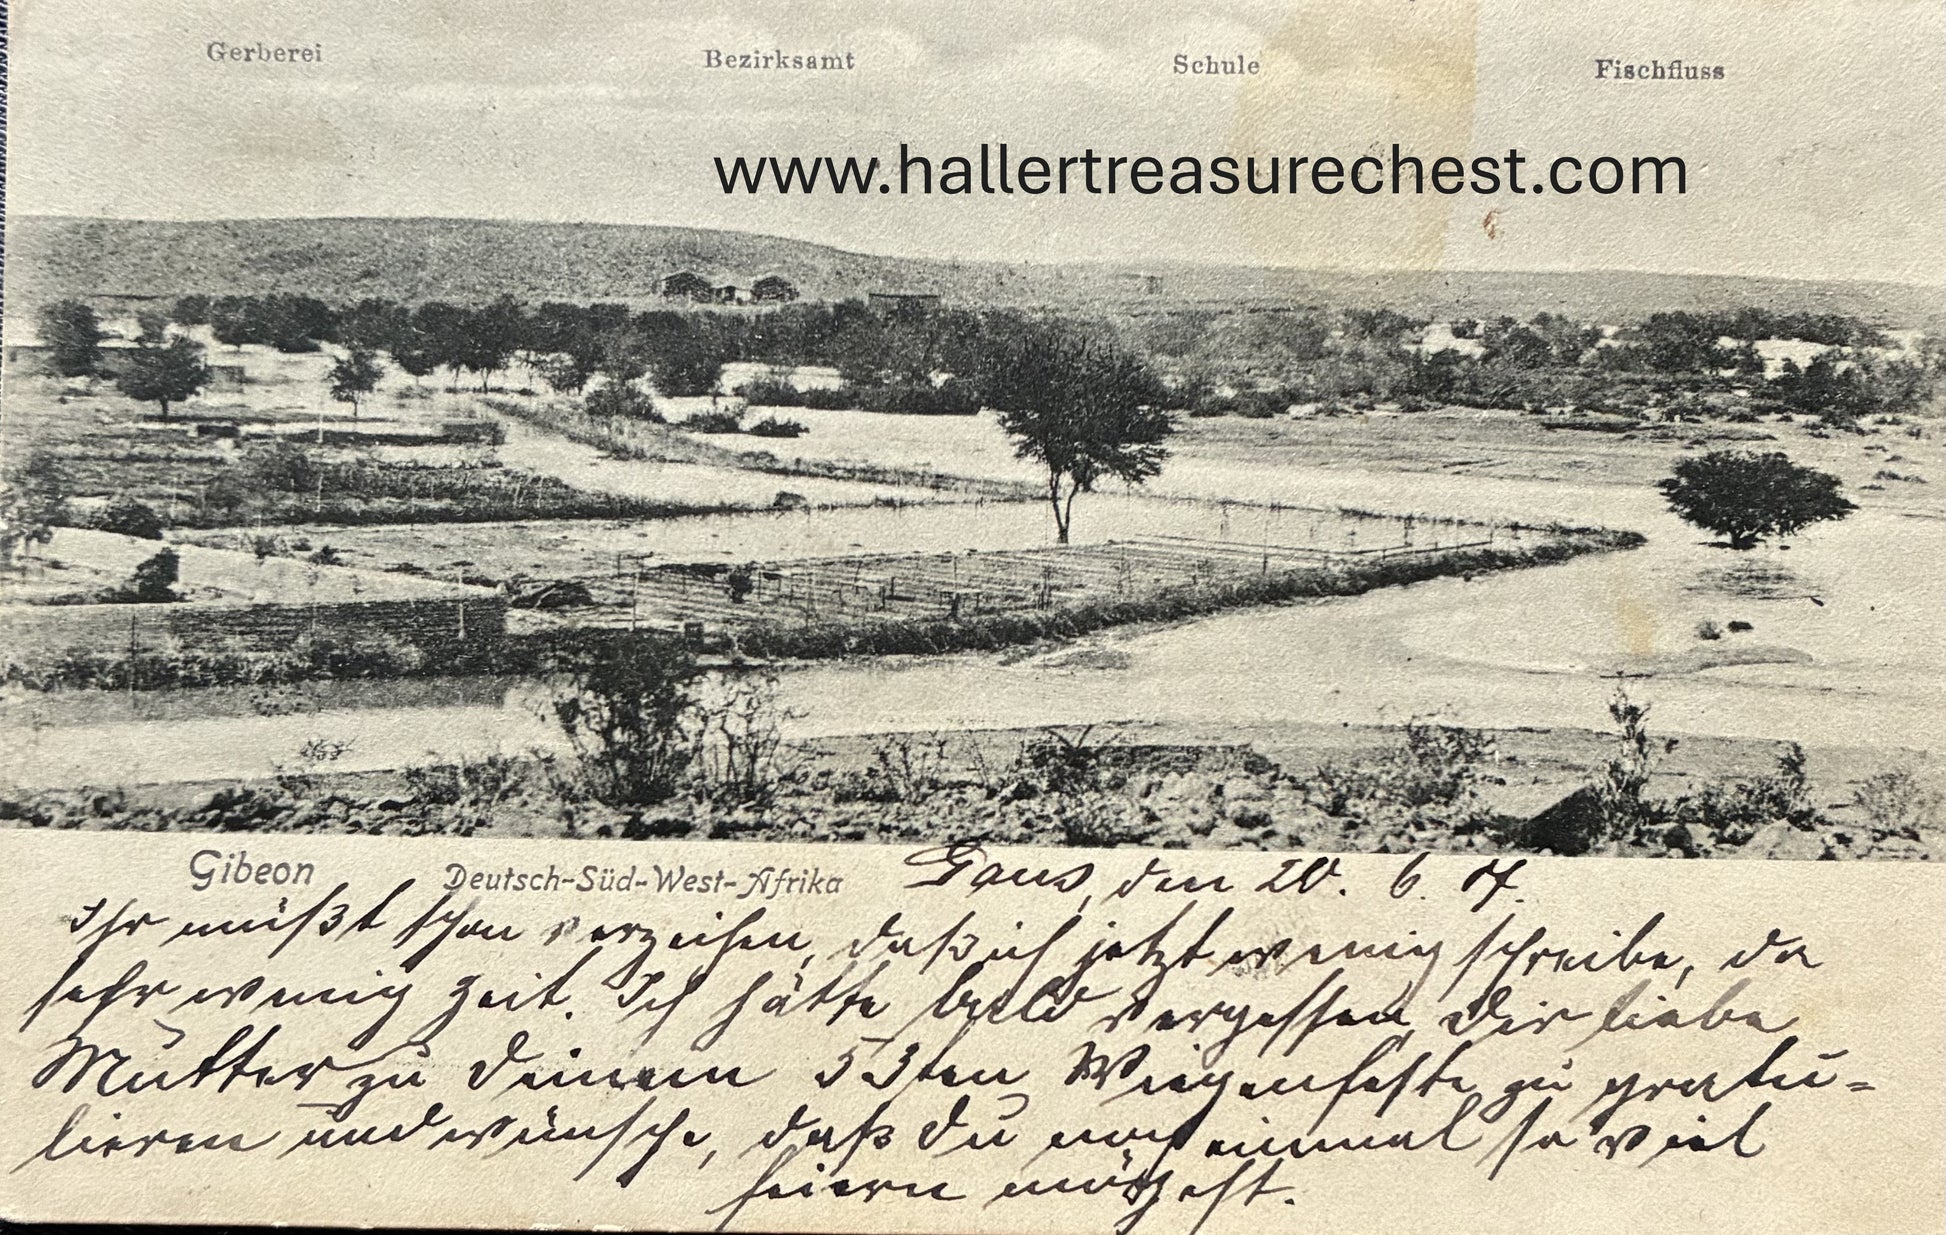 Gerberei Bezirksamt Schule Fischfluss
www.hallertreasurechest.com
Gibeon Deutsch-Süd-West-Afrika den 20. 6. 07.
Ihr müßt schon verzeihen, daß ich jetzt wenig schreibe, da
sehr wenig Zeit. Ich hätte bald vergessen, Dir liebe
Mutter zu Deinem 53ten Wiegenfeste zu gratu=
lieren und wünsche, daß Du noch einmal so viel
feiern mögest.